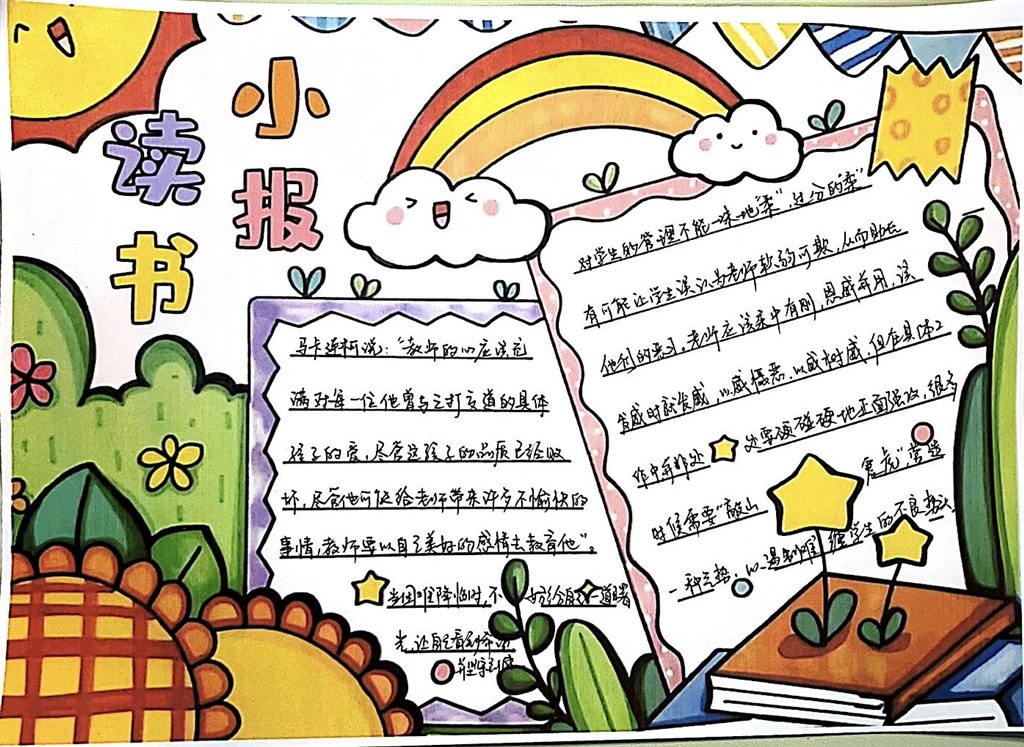 读书
小报
马卡连柯说：“教师的心应该充
满对每一位他曾与之打交道的具体
孩子的爱，尽管这孩子的品质已经败
坏，尽管他可能给老师带来许多不愉快的
事情，教师要以自己美好的感情去教育他”。
当困难降临时，不 好给自己一道曙
光，让自己看到希
对学生的管理不能一味地“柔”，过分的“柔”
有可能让学生误认为老师软弱可欺，从而助长
他们的恶习。老师应该柔中有刚，恩威并用，该
发威时就发威，以威慑恶，以威树威，但在具体工
作中再难处 处要硬碰硬地正面强攻，很多
时候需要“敲山 虎”，营造
一种气势，以遏制 学生的不良势头